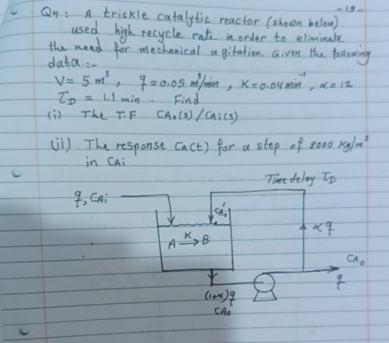 -19-
Q4: A trickle catalytic reactor (shown below)
used high recycle ratio inorder to eliminate
the need for mechanical agitation. Given the following
data:-
V= 5 m³, q=0.05 m³/min, K=0.04min⁻¹, α=12
τD = 1.1 min. Find
(i) The T.F CAo(s)/CAi(s)
(ii) The response CA(t) for a step of 2000 Kg/m³
in CAi
Time delay τD
q, CAi
CAo'
αq
A K→ B
CAo
q
(1+α)q
CAo